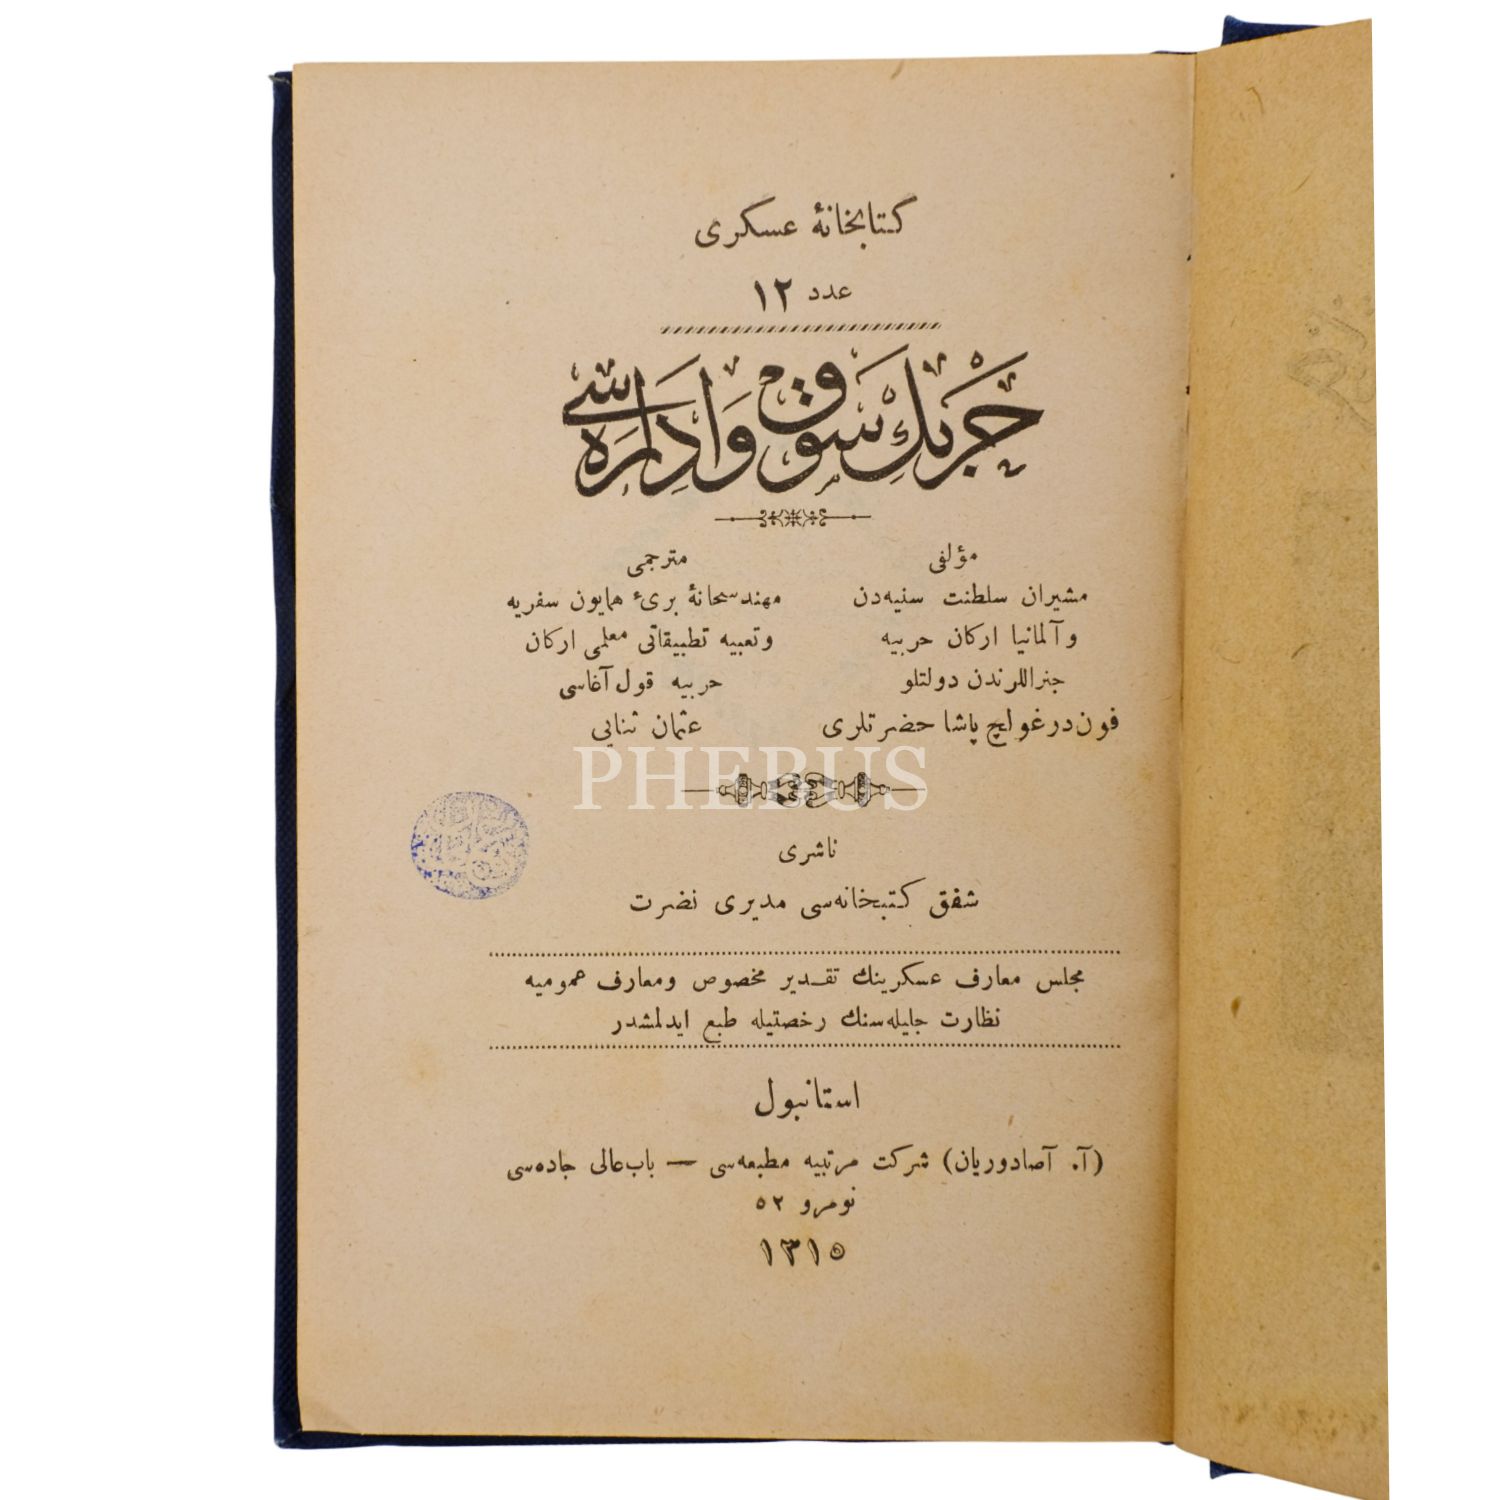 كتابخانۀ عسكری
عدد ١٢
حربك سوق و اداره سی
مؤلفی
مشیران سلطنت سنیه‌دن
و آلمانیا اركان حربیه
جنراللرندن دولتلو
فون در غولچ پاشا حضرتلری
مترجمی
مهندسخانۀ بریٔ همایون سفریه
و تعبیه تطبیقاتی معلمی اركان
حربیه قول آغاسی
عثمان ثنایی
PHEBUS
ناشری
شفق كتبخانه‌سی مدیری نضرت
مجلس معارف عسكرینك تقدیر مخصوص ومعارف عمومیه
نظارت جلیله‌سنك رخصتیله طبع ایدلمشدر
استانبول
(آ. آصادوریان) شركت مرتبیه مطبعه‌سی — باب عالی جاده‌سی
نومرو ٥٢
١٣١٥